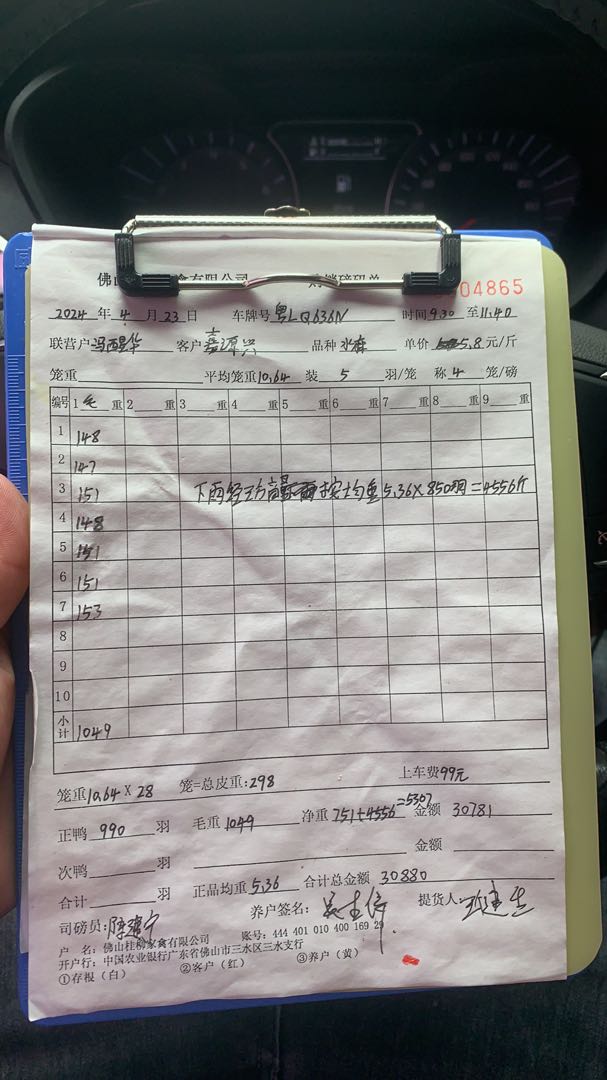 佛山 禽有限公司 购销磅码单 04865
2024 年 4 月 23 日 车牌号 粤LQ636N 时间 9:30 至 11:40
联营户 冯 华 客户 嘉源兴 品种 水麻 单价 5.8 元/斤
笼重 平均笼重 10.64 装 5 羽/笼 称 4 笼/磅
编号 1 毛 重 2 重 3 重 4 重 5 重 6 重 7 重 8 重 9 重
1 148
2 147
3 151 下雨经 方 按均重5.36×850羽=4556斤
4 148
5 151
6 151
7 153
8
9
10
小计 1049
笼重 10.64 × 28 笼=总皮重: 298 上车费 99元
正鸭 990 羽 毛重 1049 净重 751+4556=5307 金额 30781
次鸭 羽 金额
合计 羽 正品均重 5.36 合计总金额 30880
司磅员: 养户签名: 提货人:
户 名: 佛山桂柳家禽有限公司 账号: 444 401 010 400 169 29
开户行: 中国农业银行广东省佛山市三水区三水支行
①存根（白） ②客户（红） ③养户（黄）